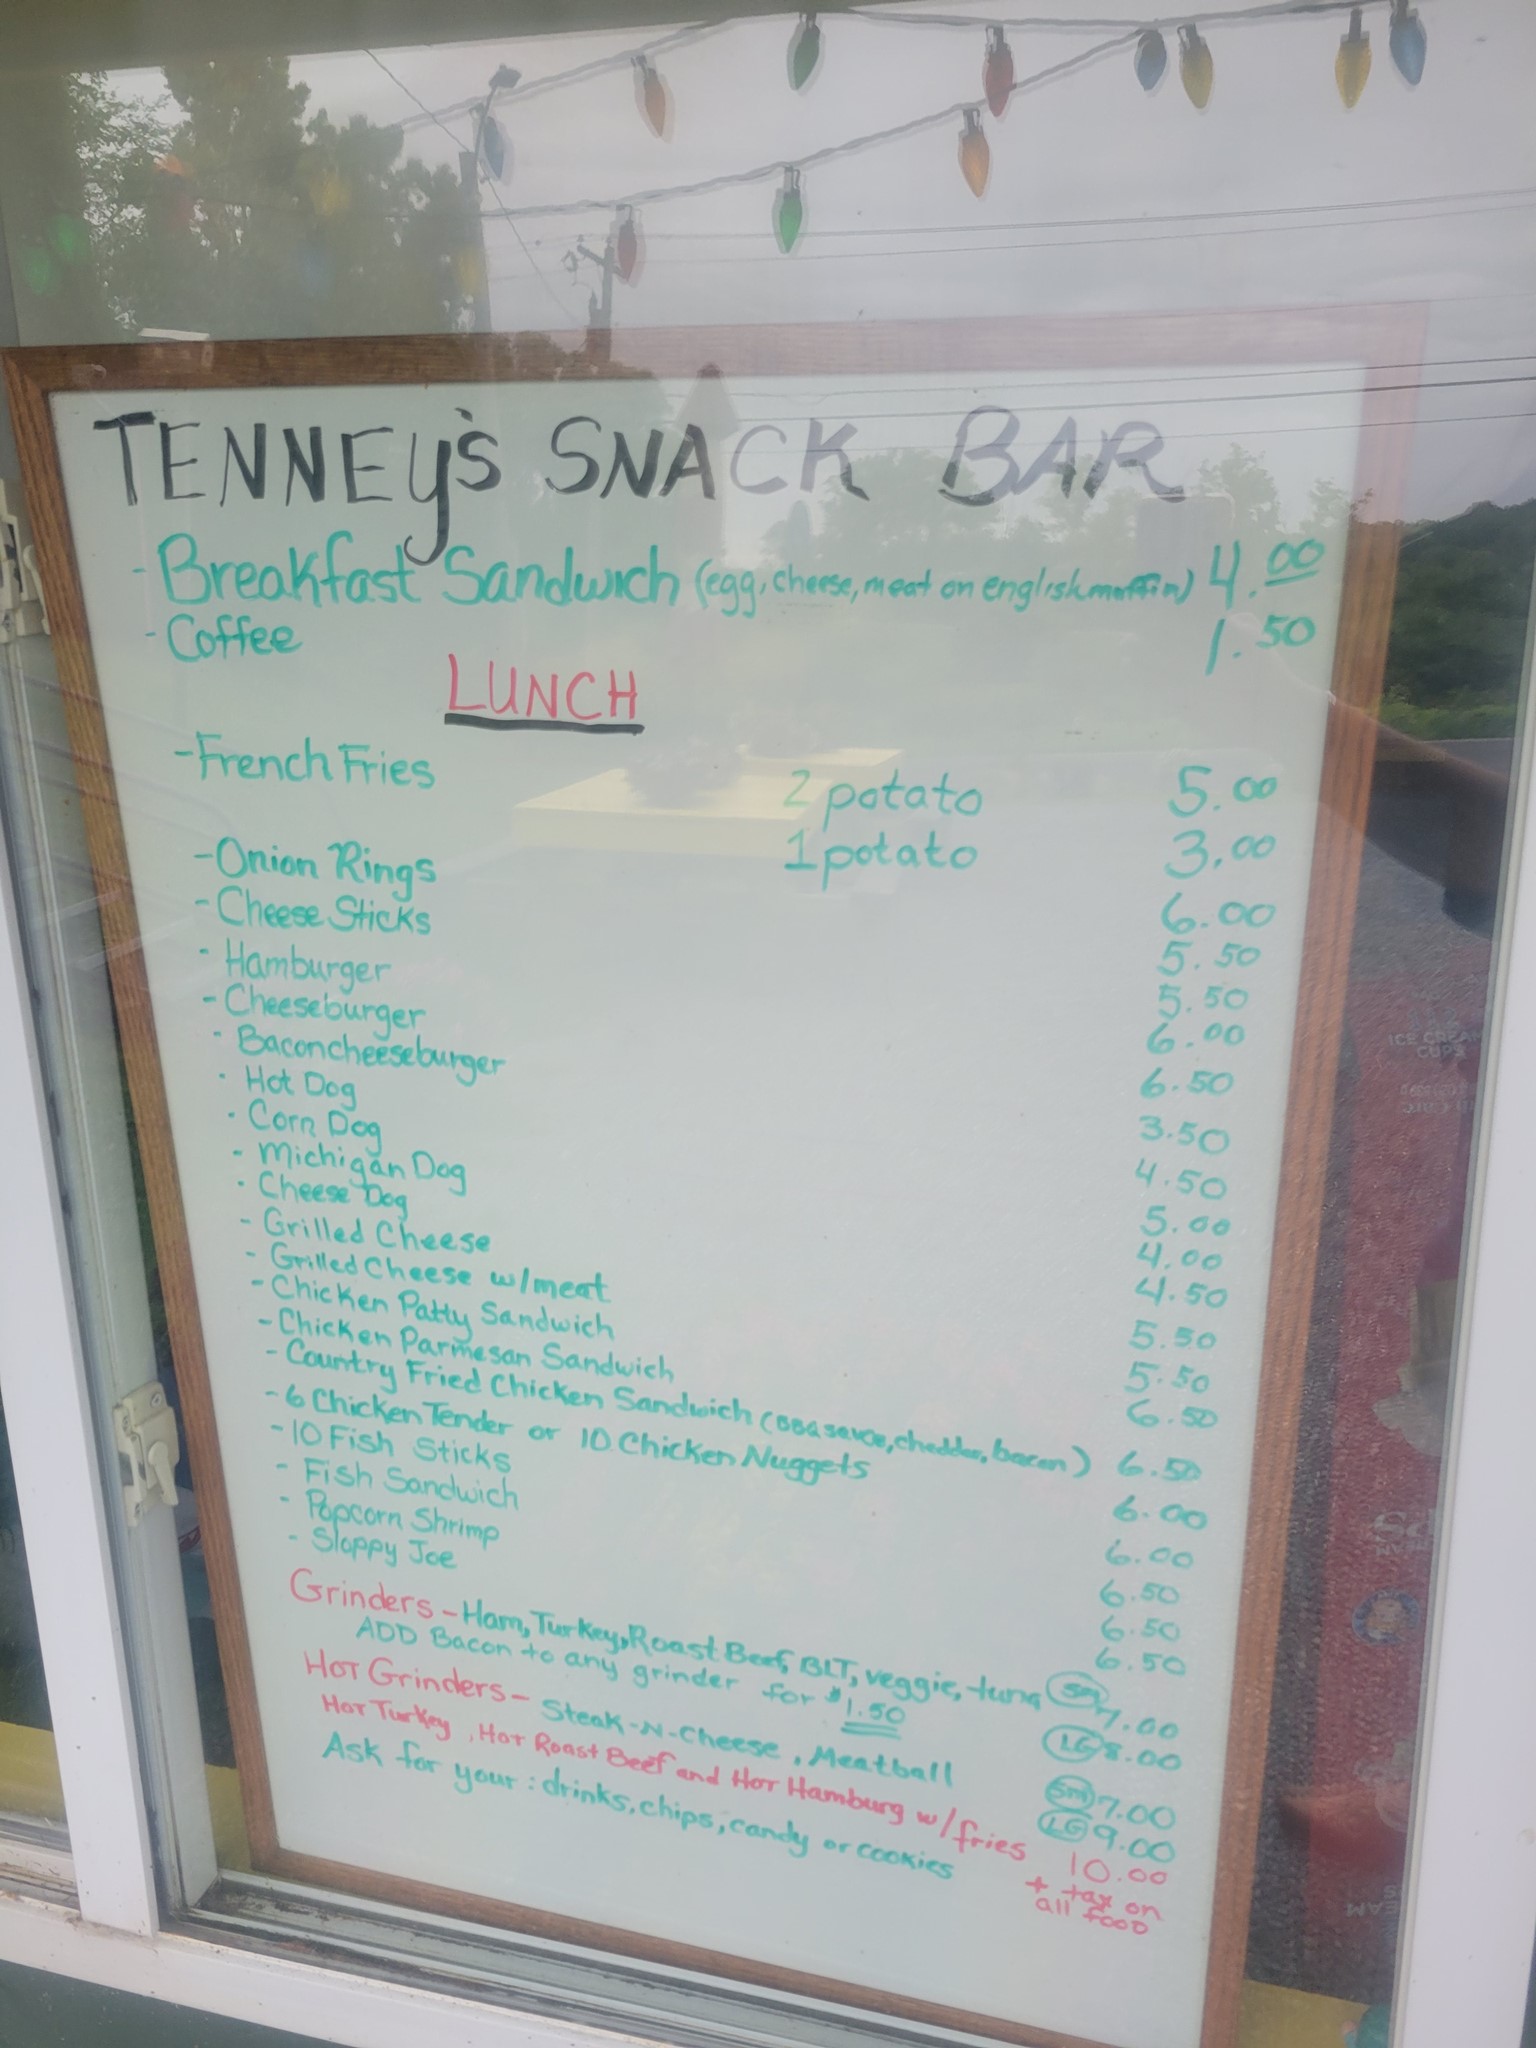 TENNEY'S SNACK BAR
- Breakfast Sandwich (egg, cheese, meat on english muffin) 4.00
- Coffee 1.50
LUNCH
- French Fries 2 potato 5.00
1 potato 3.00
- Onion Rings 6.00
- Cheese Sticks 5.50
- Hamburger 5.50
- Cheeseburger 6.00
- Baconcheeseburger 6.50
- Hot Dog 3.50
- Corn Dog 4.50
- Michigan Dog 5.00
- Cheese Dog 4.00
- Grilled Cheese 4.50
- Grilled Cheese w/meat 5.50
- Chicken Patty Sandwich 5.50
- Chicken Parmesan Sandwich 6.50
- Country Fried Chicken Sandwich (BBQ sauce, cheddar, bacon) 6.50
- 6 Chicken Tender or 10 Chicken Nuggets 6.00
- 10 Fish Sticks 6.00
- Fish Sandwich 6.50
- Popcorn Shrimp 6.50
- Sloppy Joe 6.50
Grinders - Ham, Turkey, Roast Beef, BLT, veggie, tuna Sm 7.00
ADD Bacon to any grinder for $1.50 LG 8.00
Hot Grinders - Steak-N-Cheese, Meatball Sm 7.00
LG 9.00
Hot Turkey, Hot Roast Beef and Hot Hamburg w/fries 10.00
Ask for your: drinks, chips, candy or cookies
+ tax on
all food
ICE CREAM
CUPS